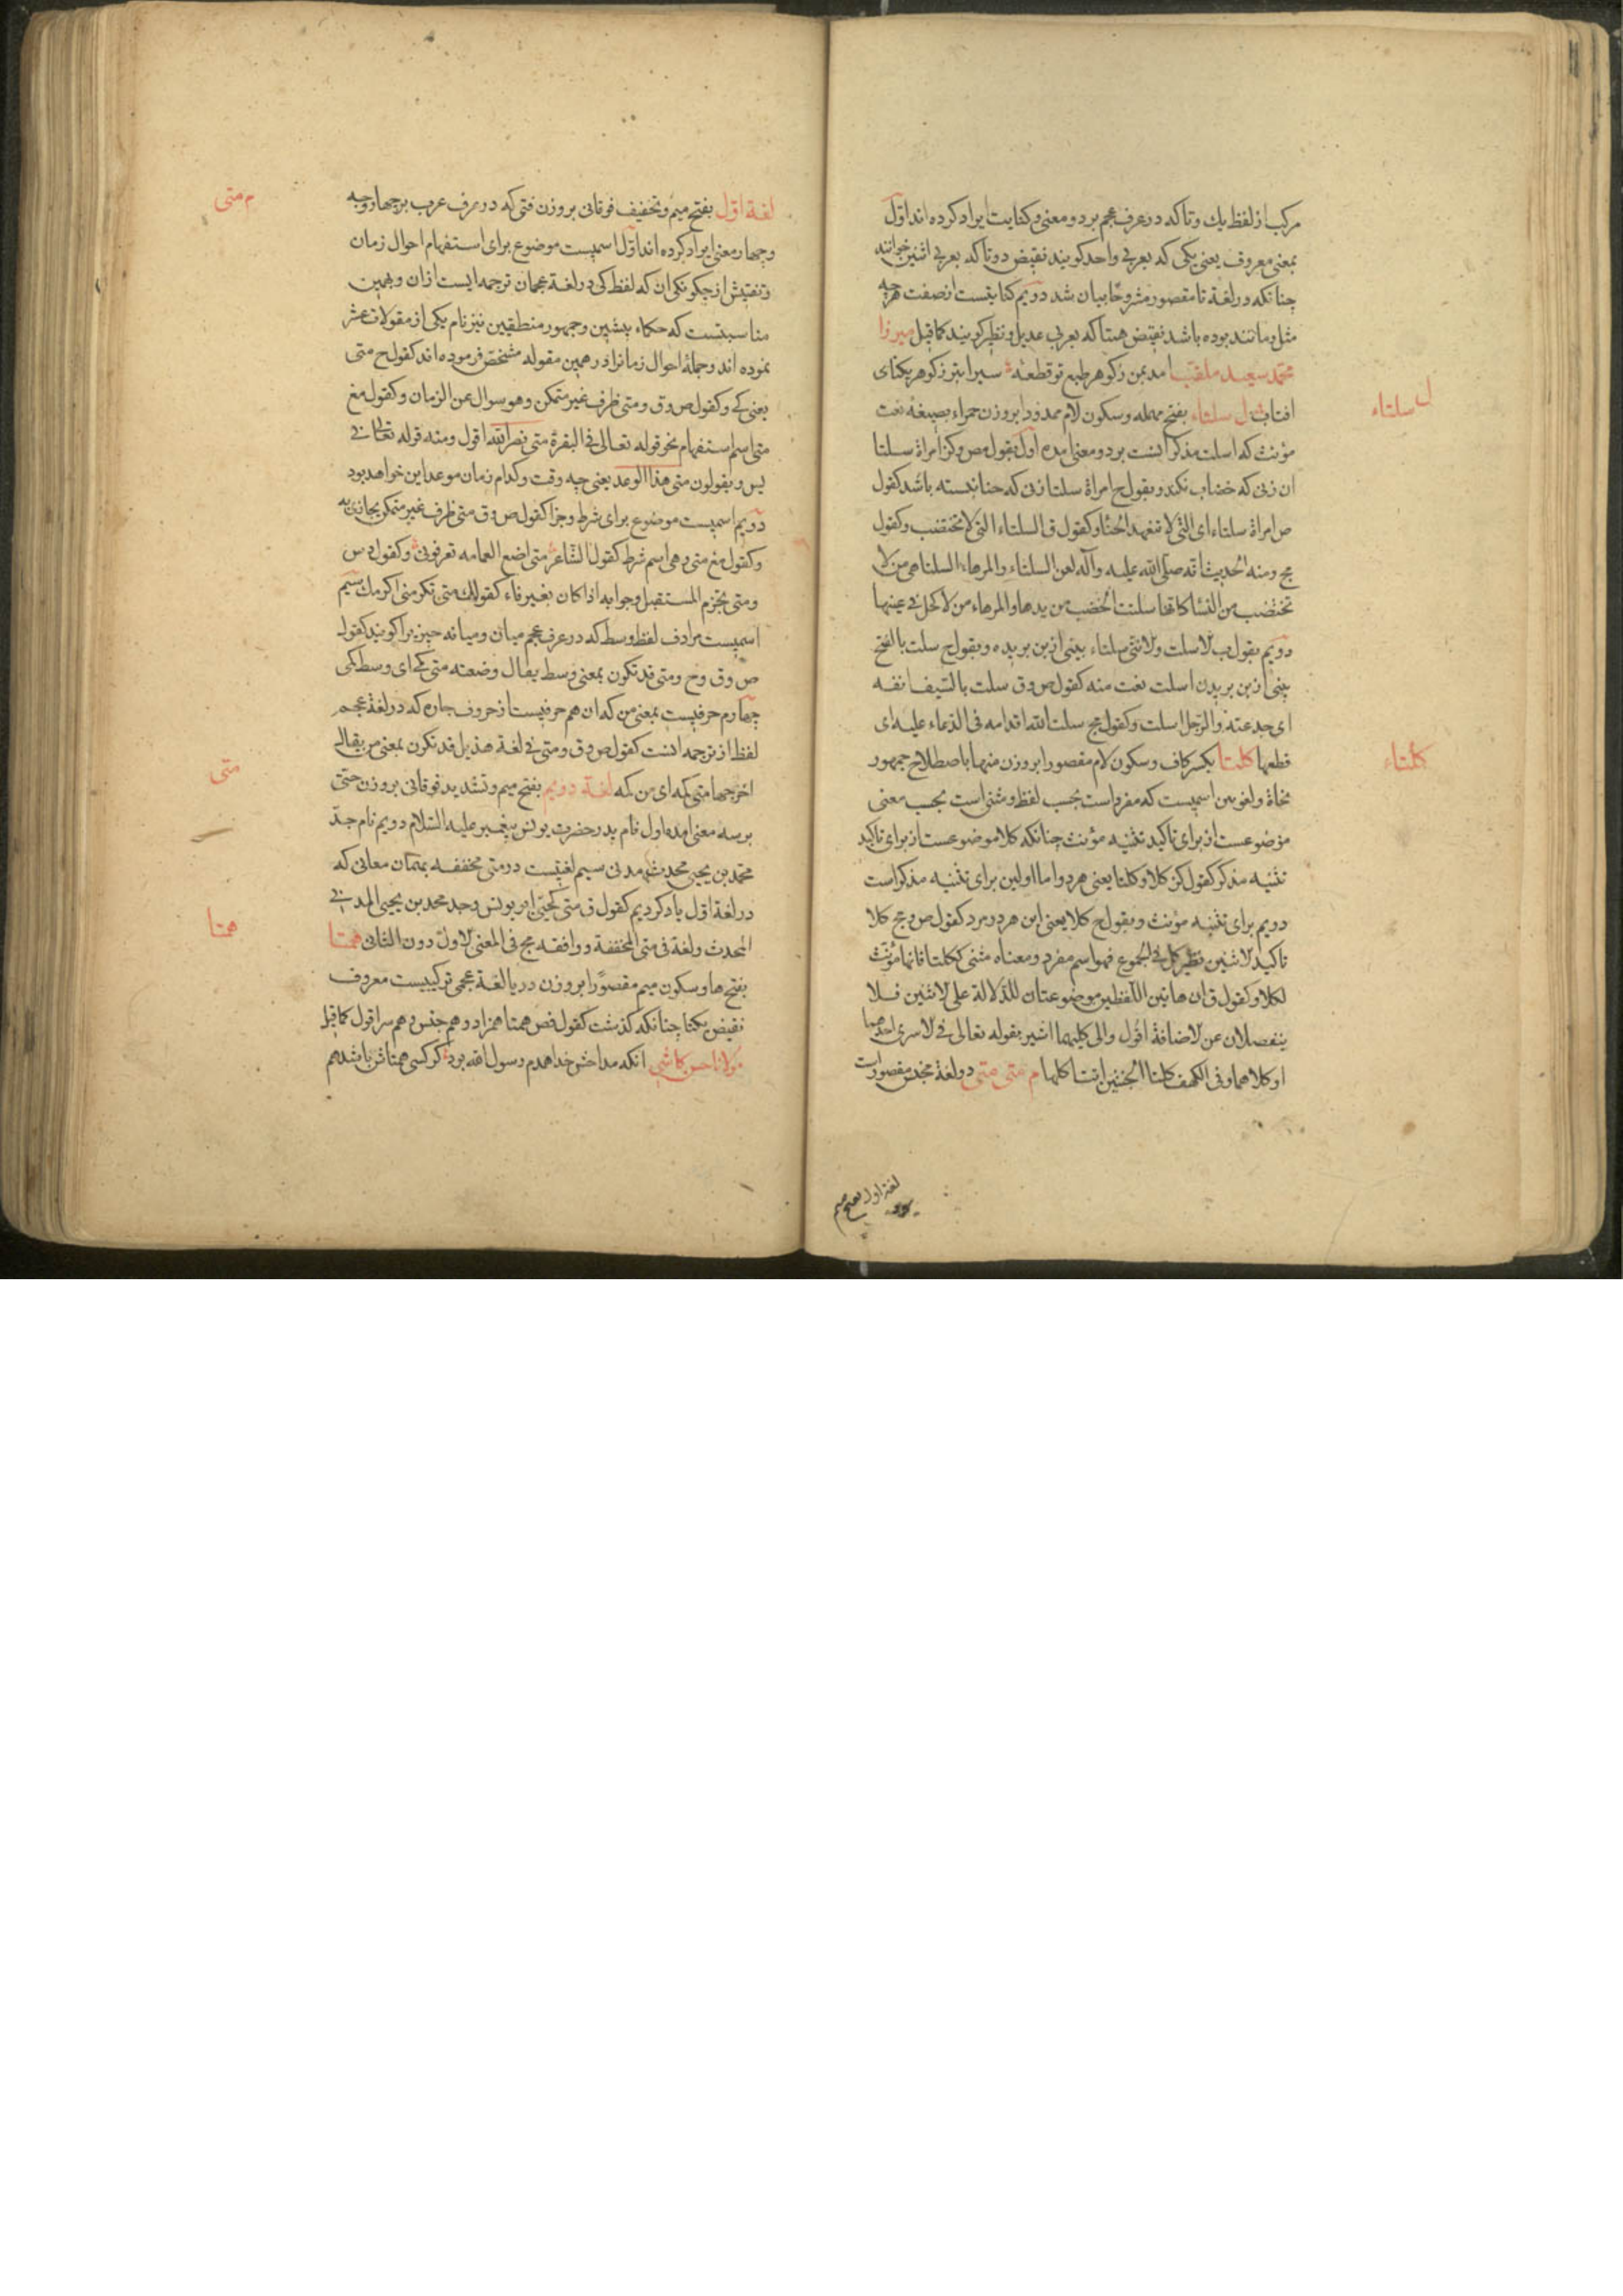 مركب از لفظ يك و تا كه در عرف عجم بر دو معنى و كنايت ايراد كرده اند اوّل
بمعنى معروف يعنى يكى كه بعربى واحد كويند نقيض دو تا كه بعربى اثنين خوانند
چنانكه در لغة تا مقصور مشروحًا بيان شد دويم كنايتست از صفت هرچه
مثل و مانند بوده باشد نقيض همتا كه بعربى عديل و نظير كويند كما قيل ميرزا
محمّد سعيد ملقب امد بمن ز كوهر طبع تو قطعۀ سيرابتر ز كوهر يكتاى
افتاب ل سلتاء بفتح مهمله و سكون لام ممدودا بروزن حمراء بصيغۀ نعت
مؤنث كه اسلت مذكر انست بر دو معنى امده اول بقول مص و كز امراة سلتا
ان زنى كه خضاب نكند و بقول ح امراة سلتا زنى كه حنا نبسته باشد كقول
ص امراة سلتاء اى التى لا تتعهد الحنّا و كقول ق السلتاء التى لا تختضب و كقول
مج و منه الحديث انّه صلى الله عليه و آله لعن السلتاء و المرهاء السلتا هى من لا
تختضب من النسا كانها سلتت الخضب من يدها و المرهاء من لا كحل فى عينها
دويم بقول ب الاسلت و الانثى سلتاء بينى از بن بريده و بقول ح سلت بالفتح
بينى از بن بريدن اسلت نعت منه كقول ص و ق سلت بالسّيف انفه
اى جدعته و الرّجل اسلت و كقول مج سلت الله اقدامه فى الدّعاء عليه اى
قطعها كلتا بكسر كاف و سكون لام مقصورا بروزن منها باصطلاح جمهور
نحاة و لغويين اسميست كه مفرد است بحسب لفظ و مثنى است بحسب معنى
موضوعست از براى تاكيد تثنيه مؤنث چنانكه كلا موضوعست از براى تاكيد
تثنيه مذكر كقول كز كلا و كلتا يعنى هر دو اما اولين براى تثنيه مذكر است
دويم براى تثنيه مؤنث و بقول ح كلا يعنى اين هر دو مرد كقول ص و مج كلا
تاكيد لاثنين نظير كل فى المجموع فهو اسم مفرد و معناه مثنى ككلتا فانها مؤنث
لكلا و كقول ق ان هاتين اللّفظين موضوعتان للدّلالة على الاثنين فلا
ينفصلان عن الاضافة اقول و الى كليهما اشير بقوله تعالى فى الاسرى احدهما
او كلاهما و فى الكهف كلتا الجنتين اتت اكلها م متى متى دو لغة مجنس مقصورات
ل سلتاء
كلتاء
لغة اول بفتح ميم
لغة اوّل بفتح ميم و تخفيف فوقانى بروزن فتى كه در عرف عرب بر چهار وجه
و چهار معنى ايراد كرده اند اوّل اسميست موضوع براى استفهام احوال زمان
و تفتيش از چكونكى ان كه لفظ كى در لغة عجمان ترجمه ايست ازان و بهمين
مناسبتست كه حكماء پيشين و جمهور منطقيين نيز نام يكى از مقولات عشر
نموده اند و جملۀ احوال زمانرا در همين مقوله مشخص فرموده اند كقول ح متى
يعنى كى و كقول ص و ق و متى ظرف غير متمكن و هو سوال عن الزمان و كقول مغ
متى اسم استفهام نحو قوله تعالى فى البقرة متى نصر الله اقول و منه قوله تعالى فى
يس و يقولون متى هذا الوعد يعنى چه وقت و كدام زمان موعد اين خواهد بود
دويم اسميست موضوع براى شرط و جزا كقول ص و ق متى ظرف غير متمكن يجازى به
و كقول مغ متى و هى اسم شرط كقول الشاعر متى اضع العمامه تعرفونى و كقول
و متى يجزم المستقبل و جوابه اذا كان بغير فاء كقولك متى تكرمنى اكرمك سيم
اسميست مرادف لفظ وسط كه در عرف عجم ميان و ميانه چيزيرا كويند كقول
ص و ق و ح و متى قد تكون بمعنى وسط يقال وضعته متى كمى اى وسط كمى
چهارم حرفيست بمعنى من كه ان هم حرفيست از حروف جاره كه در لغة عجم
لفظ از ترجمه انست كقول ص و ق و متى فى لغة هذيل قد تكون بمعنى من يقال
اخرجها متى كمه اى من كمه لغة دويم بفتح ميم و تشديد فوقانى بروزن حتّى
بر سه معنى امده اول نام پدر حضرت يونس پيغمبر عليه السّلام دويم نام جدّ
محمّد بن يحيى محدث مدنى سيم لغتيست در متى مخففه بهمان معانى كه
در لغة اوّل ياد كرديم كقول ق متّى كحتّى ابو يونس و جد محمد بن يحيى المدينى
المحدث و لغة فى متى المخففة و وافقه مج فى المعنى الاول دون الثانى همتا
بفتح ها و سكون ميم مقصورًا بروزن دريا لغة عجمى تركيبيست معروف
نقيض يكتا چنانكه كذشت كقول فص همتا همزاد و هم جنس و هم سر اقول كما قيل
مولانا حسن كاشى انكه مداحش خدا همدم رسول الله بود كر كسى همتاش باشد هم
م متى
متى
همتا